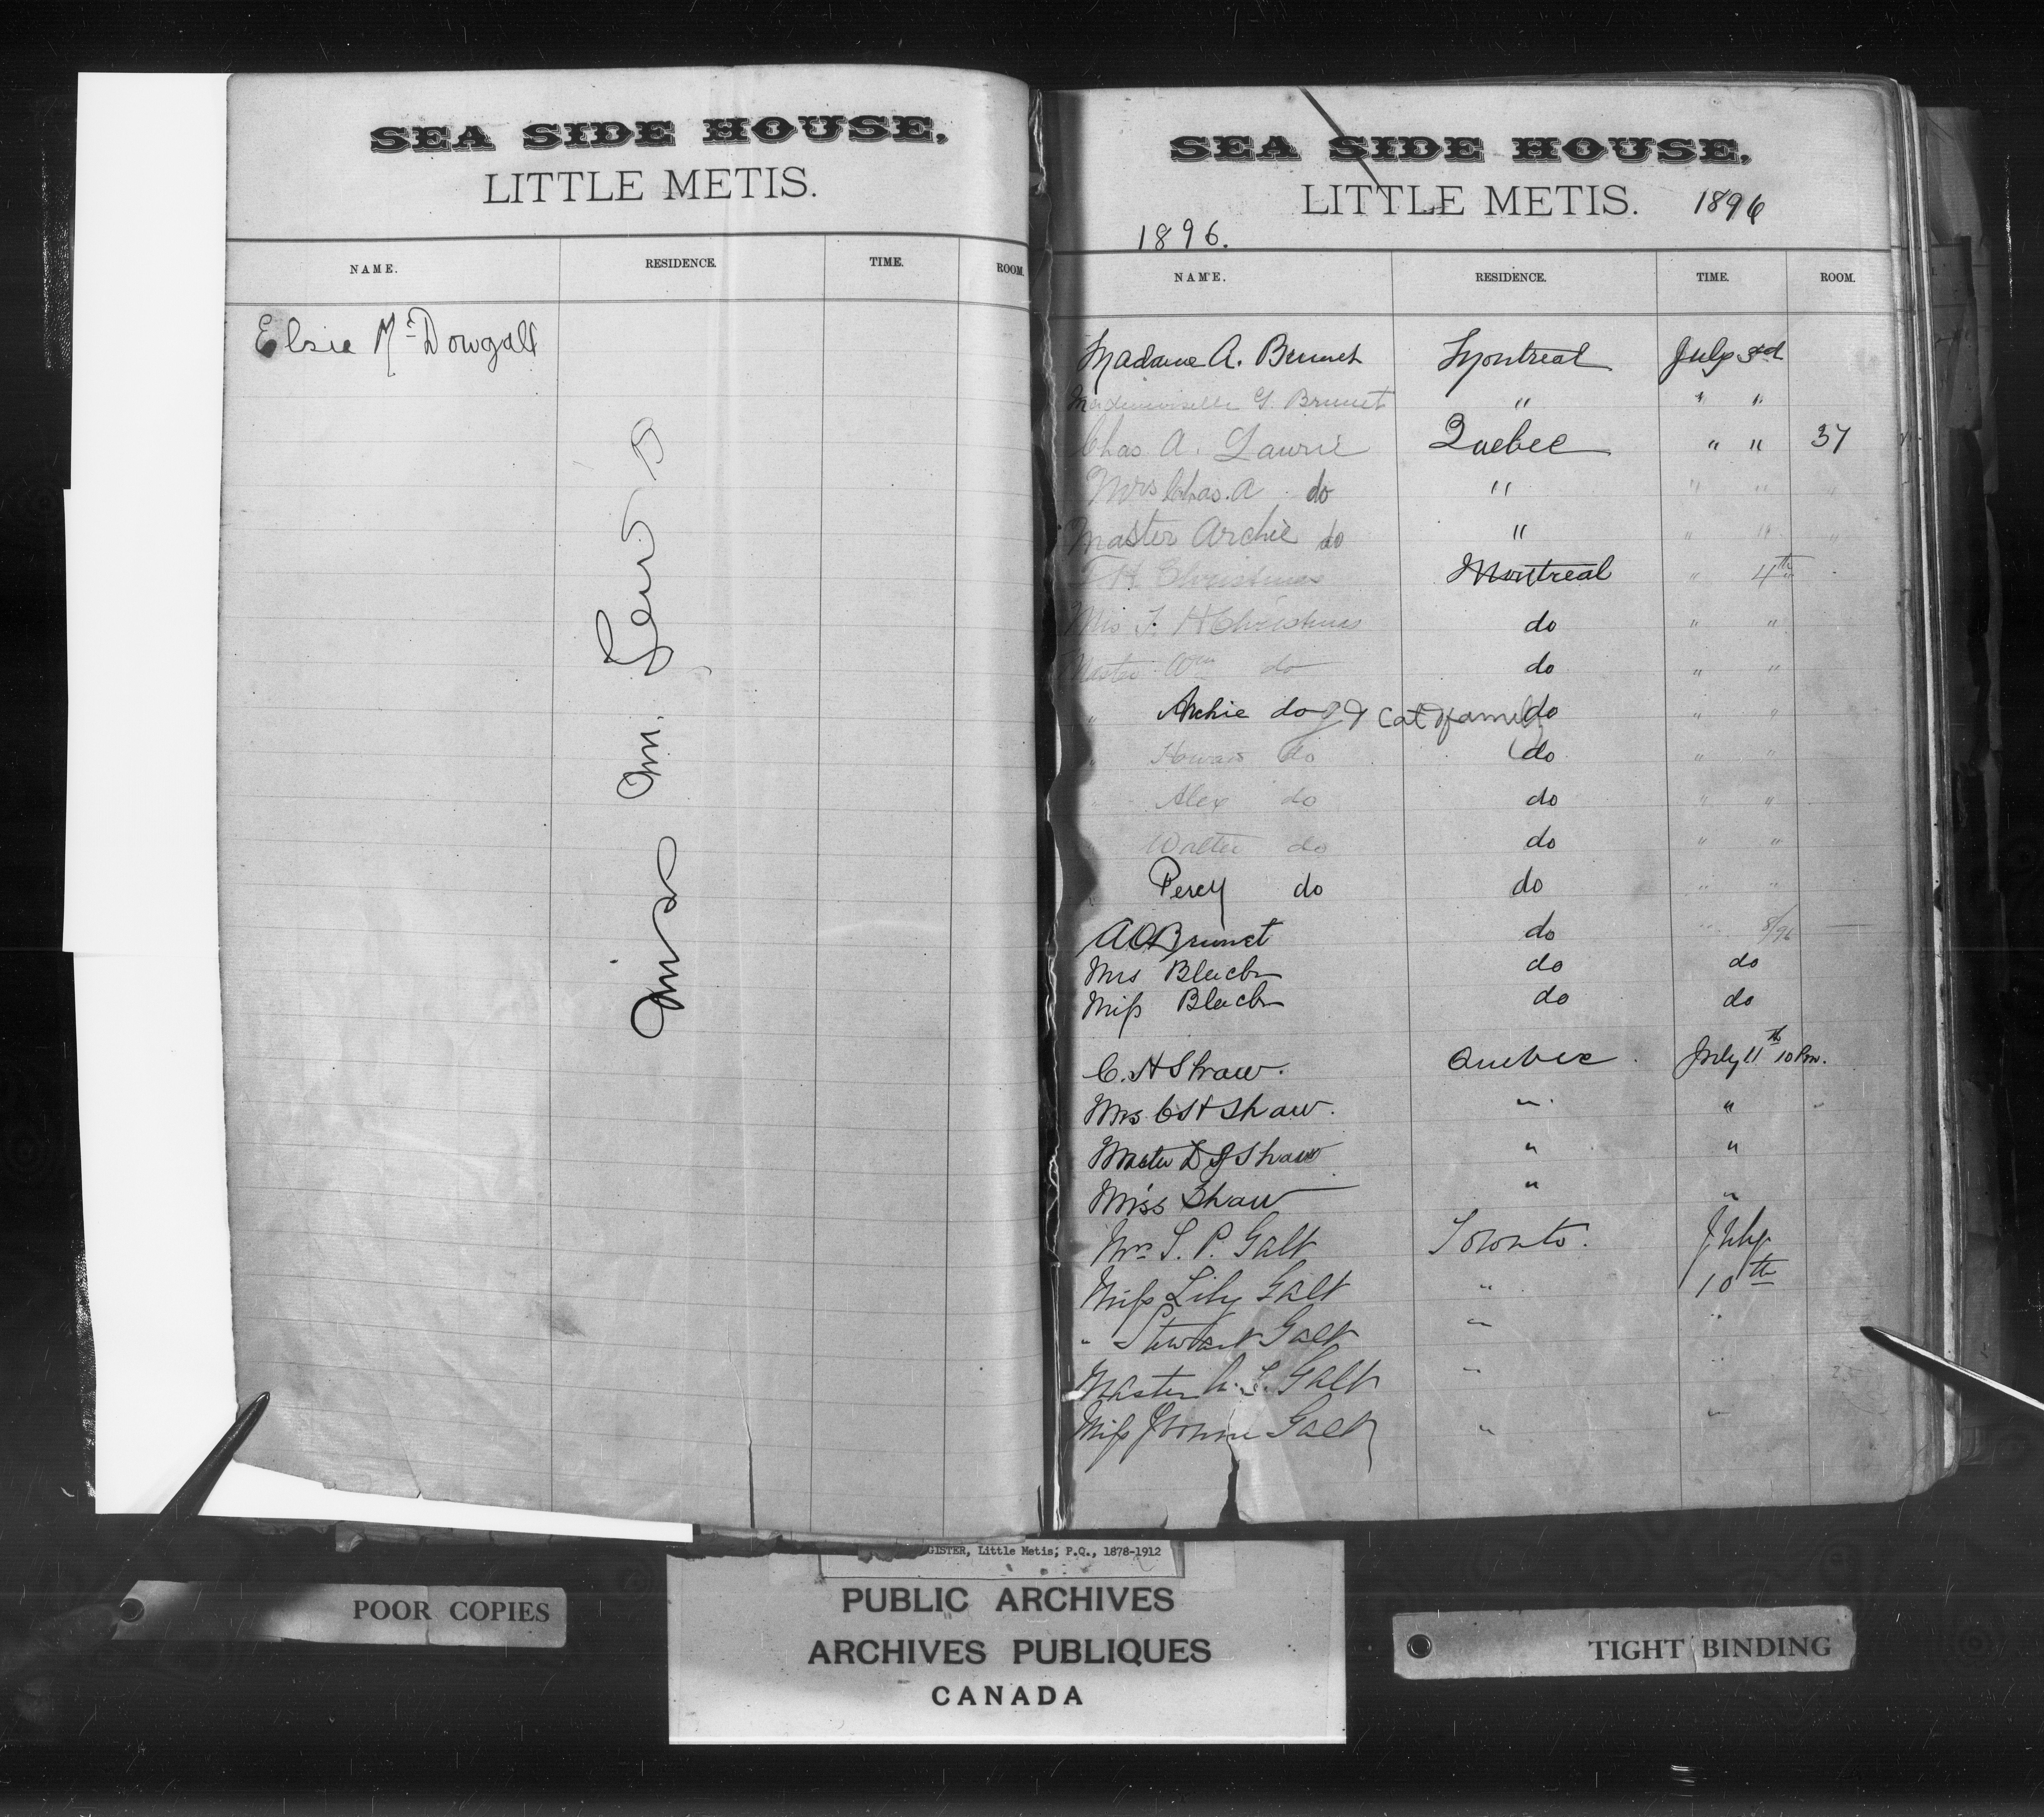 SEA SIDE HOUSE,
LITTLE METIS.
NAME. RESIDENCE. TIME. ROOM.
Elsie Mc Dowgall
Miss M.
SEA SIDE HOUSE,
LITTLE METIS. 1896
1896.
NAME. RESIDENCE. TIME. ROOM.
Madame A. Brunet Montreal July 3rd
Mademoiselle G. Brunet " " "
Chas. A. Lawrie Quebec " " 37
Mrs Chas. A do " " "
Master Archie do " " "
F H Christmas Montreal " 4th
Mrs F. H Christmas do " "
Master Wm do do " "
" Archie do g & Cat & family do " "
" Howard do do " "
" Alex do do " "
Walter do do " "
" Percy do do " "
A O Brunet do " 8/96
Mrs do do
Miss do do
C. H Shaw. Quebec. July 11th 10 Pm.
Mrs C H Shaw. " "
Master D J Shaw " "
Miss Shaw " "
Mrs T. P. Galt Toronto. July
Miss Lily Galt " 10th
" Stewart Galt " "
Master A. T. Galt " "
Miss Yvonne Galt " "
GISTER, Little Metis; P.Q., 1878-1912
PUBLIC ARCHIVES
ARCHIVES PUBLIQUES
CANADA
POOR COPIES
TIGHT BINDING